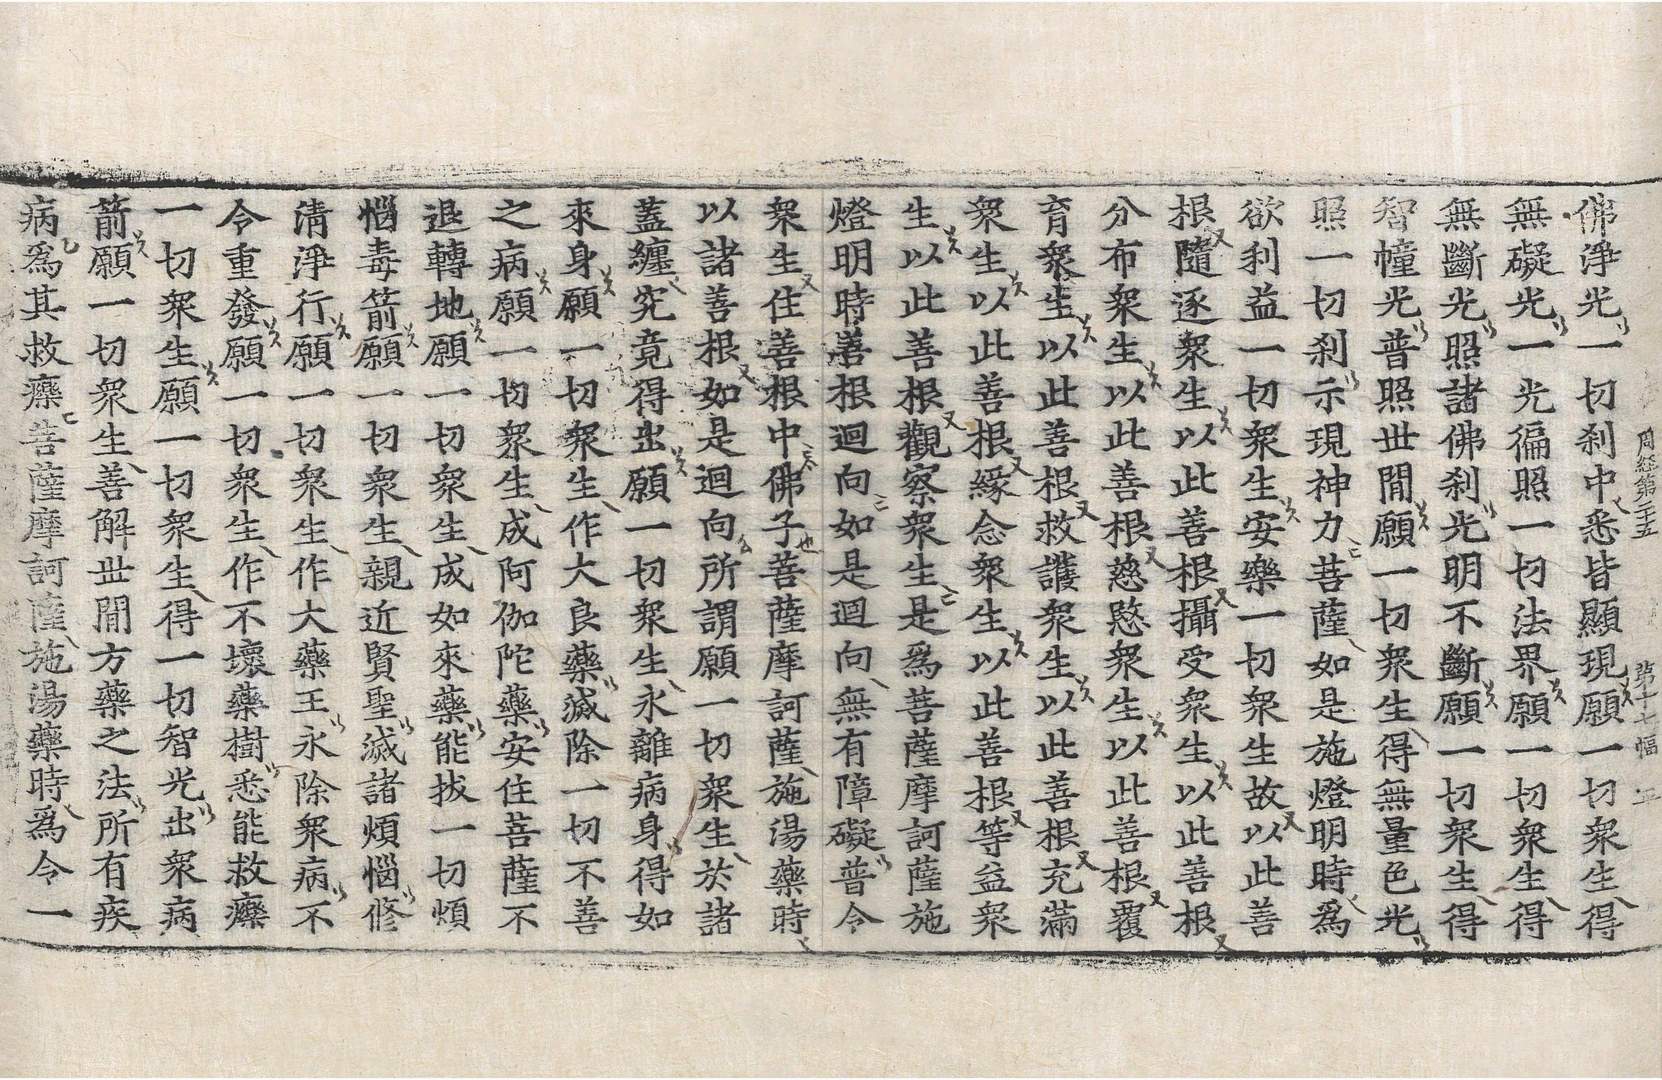 周經第二十五 第十七幅
佛淨光一切刹中悉皆顯現願一切衆生得
無礙光一光徧照一切法界願一切衆生得
無斷光照諸佛刹光明不斷願一切衆生得
智幢光普照世間願一切衆生得無量色光
照一切刹示現神力菩薩如是施燈明時爲
欲利益一切衆生安樂一切衆生故以此善
根隨逐衆生以此善根攝受衆生以此善根
分布衆生以此善根慈愍衆生以此善根覆
育衆生以此善根救護衆生以此善根充滿
衆生以此善根緣念衆生以此善根等益衆
生以此善根觀察衆生是爲菩薩摩訶薩施
燈明時善根迴向如是迴向無有障礙普令
衆生住善根中佛子菩薩摩訶薩施湯藥時
以諸善根如是迴向所謂願一切衆生於諸
蓋纏究竟得出願一切衆生永離病身得如
來身願一切衆生作大良藥滅除一切不善
之病願一切衆生成阿伽陀藥安住菩薩不
退轉地願一切衆生成如來藥能拔一切煩
惱毒箭願一切衆生親近賢聖滅諸煩惱修
清淨行願一切衆生作大藥王永除衆病不
令重發願一切衆生作不壞藥樹悉能救療
一切衆生願一切衆生得一切智光出衆病
箭願一切衆生善解世間方藥之法所有疾
病爲其救療菩薩摩訶薩施湯藥時爲令一